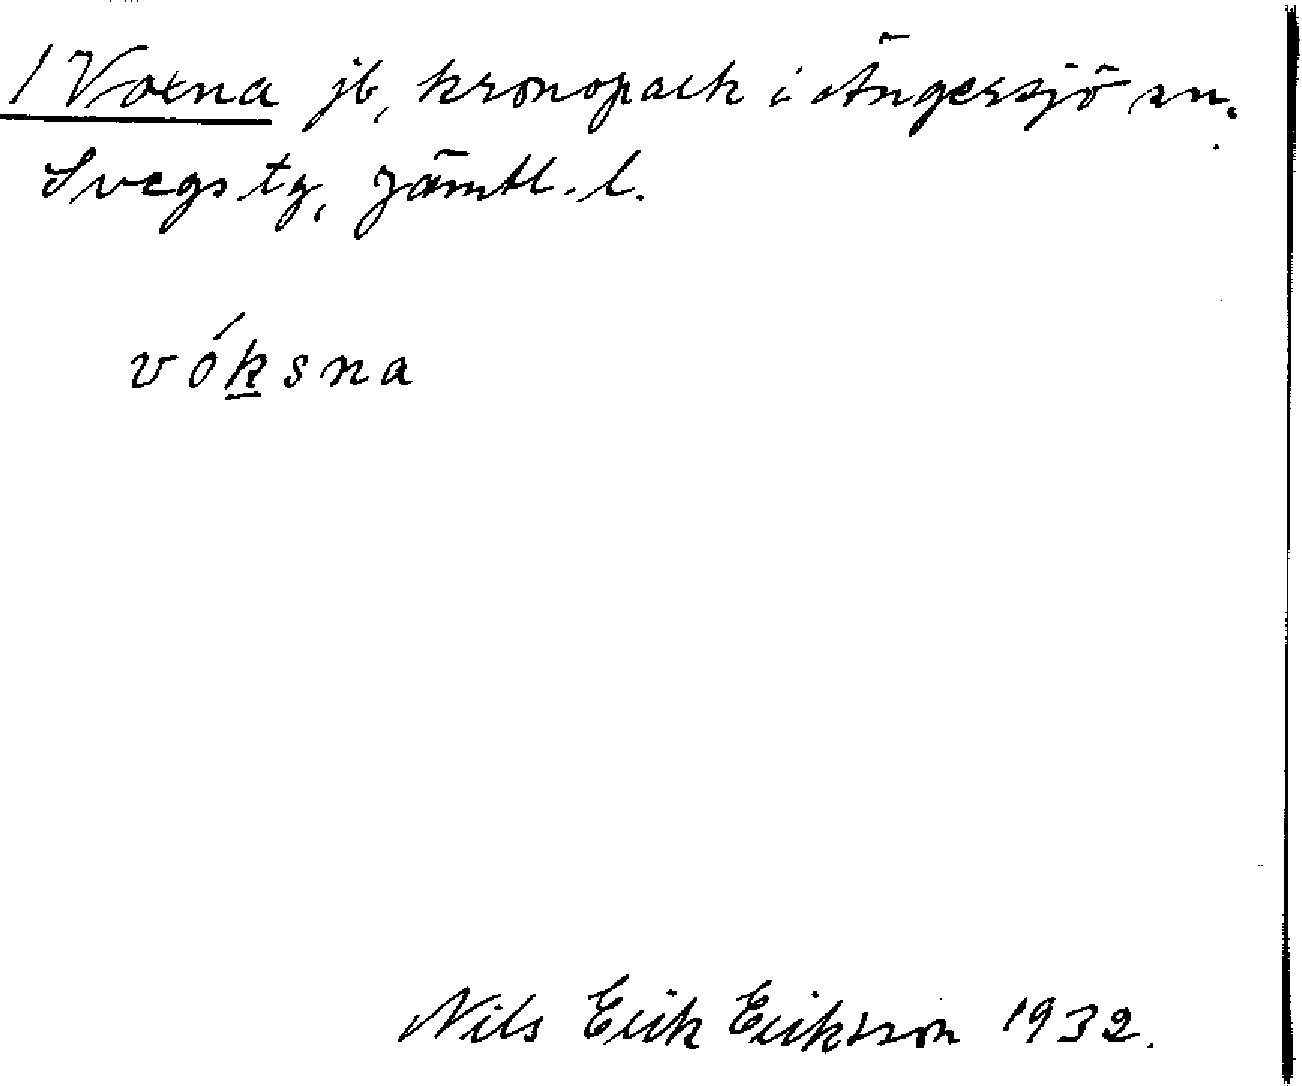 / Voxna jb, kronopark i Ängersjö sn.
Svegs tg, Jämtl. l.
vóksna
Nils Erik Eriksson 1932.